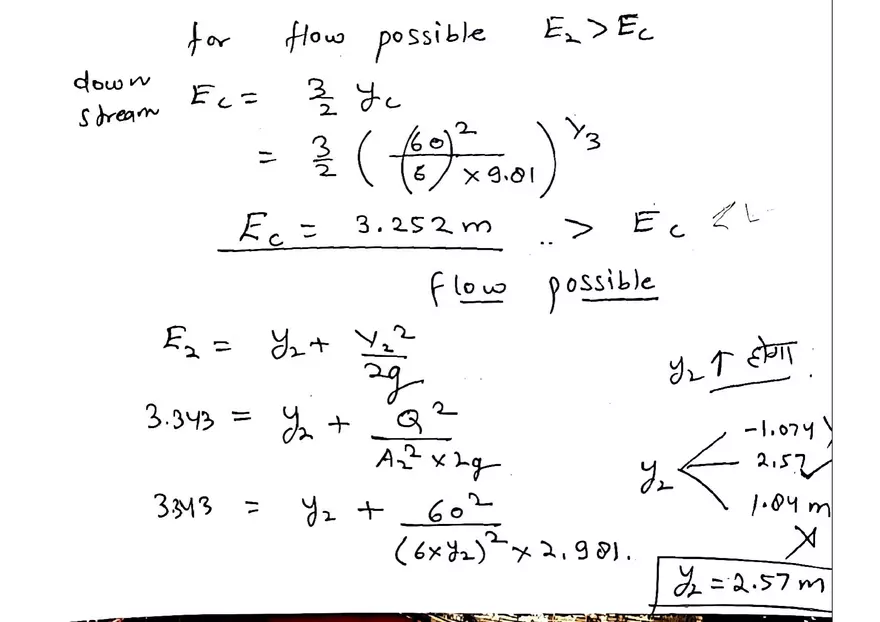 for flow possible E₂ > Ec
down stream Ec = 3/2 yc
= 3/2 ( (60/6)² / 9.81 )^(1/3)
Ec = 3.252 m .. > Ec
flow possible
E₂ = y₂ + V₂²/2g
y₂ ↑ होगा
3.343 = y₂ + Q²/(A₂² × 2g)
y₂ < -1.074
2.57 ✓
1.84 m ✗
3343 = y₂ + 60²/((6×y₂)² × 2.981.
y₂ = 2.57 m